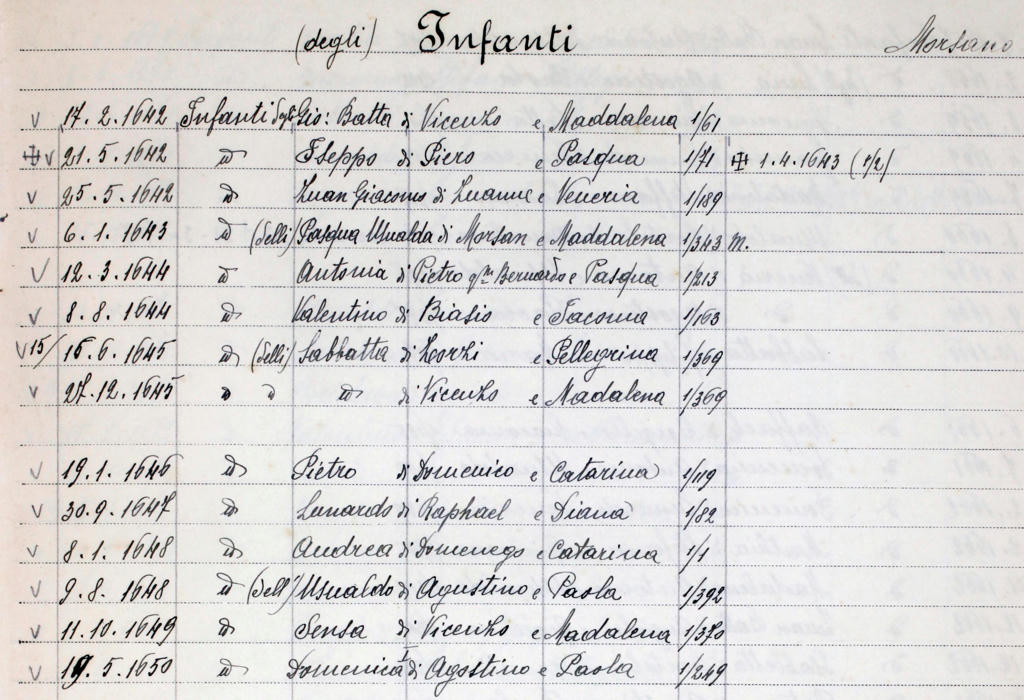 (degli) Infanti Morsano
V 17. 2. 1642 Infanti degli Gio: Batta di Vicenzo e Maddalena 1/61
V 21. 5. 1642 id Iseppo di Piero e Pasqua 1/71 1. 4. 1643 (1/2)
V 25. 5. 1642 id Zuan Giacomo di Zuanne e Veneria 1/189
V 6. 1. 1643 id (delli) Pasqua Usualda di Morsan e Maddalena 1/343 m.
V 12. 3. 1644 id Antonia di Pietro qm Bernardo e Pasqua 1/213
V 8. 8. 1644 id Valentino di Biasio e Jacoma 1/163
V 15/ 15. 6. 1645 id (delli) Sabbatta di Zorzi e Pellegrina 1/369
V 27. 12. 1645 id id id di Vicenzo e Madalena 1/369
V 19. 1. 1646 id Pietro di Domenico e Catarina 1/119
V 30. 9. 1647 id Lunardo di Raphael e Diana 1/82
V 8. 1. 1648 id Andrea di Domenego e Catarina 1/1
V 9. 8. 1648 id (dell') Usualdo di Agustino e Paola 1/392
V 11. 10. 1649 id Sensa di Vicenzo e Madalena 1/370
V 19. 5. 1650 id Domenica di Agostino e Paola 1/249